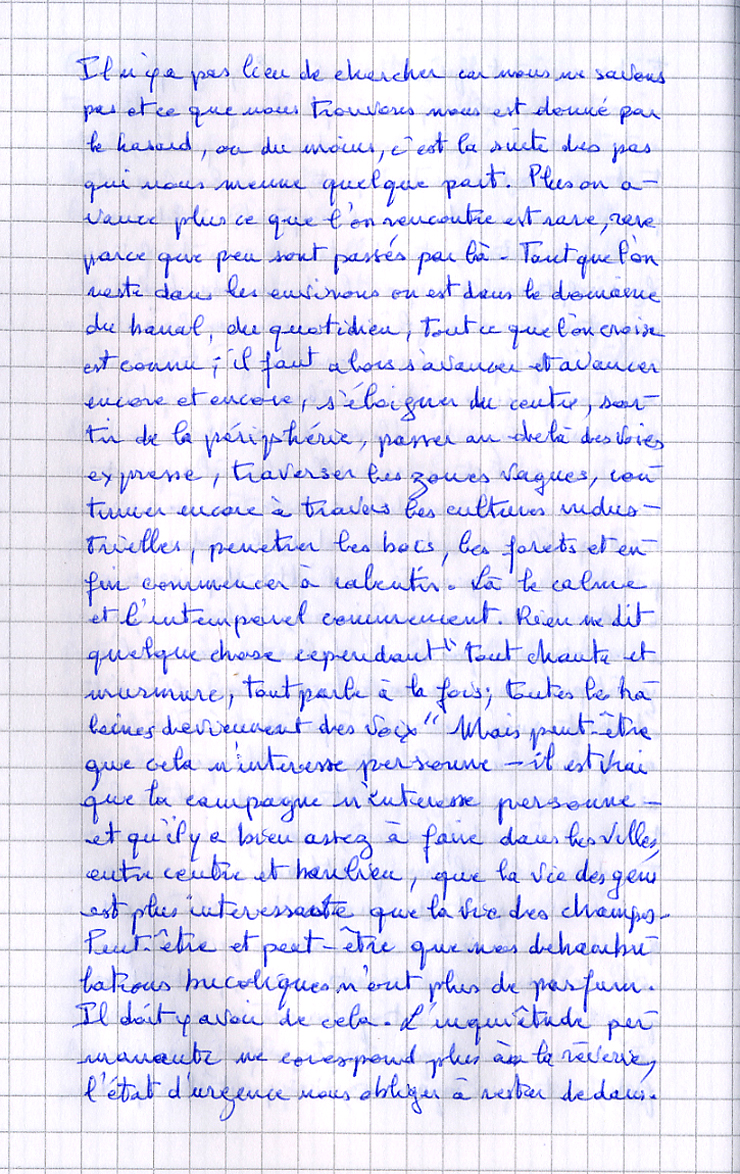 Il n'y a pas lieu de chercher car nous ne savons
pas et ce que nous trouvons nous est donné par
le hasard, ou du moins, c'est la suite des pas
qui nous menne quelque part. Plus on a-
vance plus ce que l'on rencontre est rare, rare
parce que peu sont passés par là - Tant que l'on
reste dans les environs on est dans le domaine
du banal, du quotidien, tout ce que l'on croise
est connu ; il faut alors s'avancer et avancer
encore et encore, s'éloigner du centre, sor-
tir de la périphérie, passer au delà des voies
expresse, traverser les zones vagues, con-
tinuer encore à travers les cultures indus-
trielles, penetrer les bois, les forets et en-
fin commencer à ralentir. Là le calme
et l'intemporel commencent. Rien ne dit
quelque chose cependant " tout chante et
murmure, tout parle à la fois; toutes les ha-
leines deviennent des voix " Mais peut-être
que cela n'interesse personne - il est vrai
que la campagne n'interesse personne -
et qu'il y a bien assez à faire dans les villes,
entre centre et banlieu, que la vie des gens
est plus interessante que la vie des champs.
Peut-être et peut-être que nos dehambu-
lations bucoliques n'ont plus de parfum.
Il doit y avoir de cela. L'inquiètude per-
manante ne corespond plus à la rêverie,
l'état d'urgence nous obliger à rester dedans.